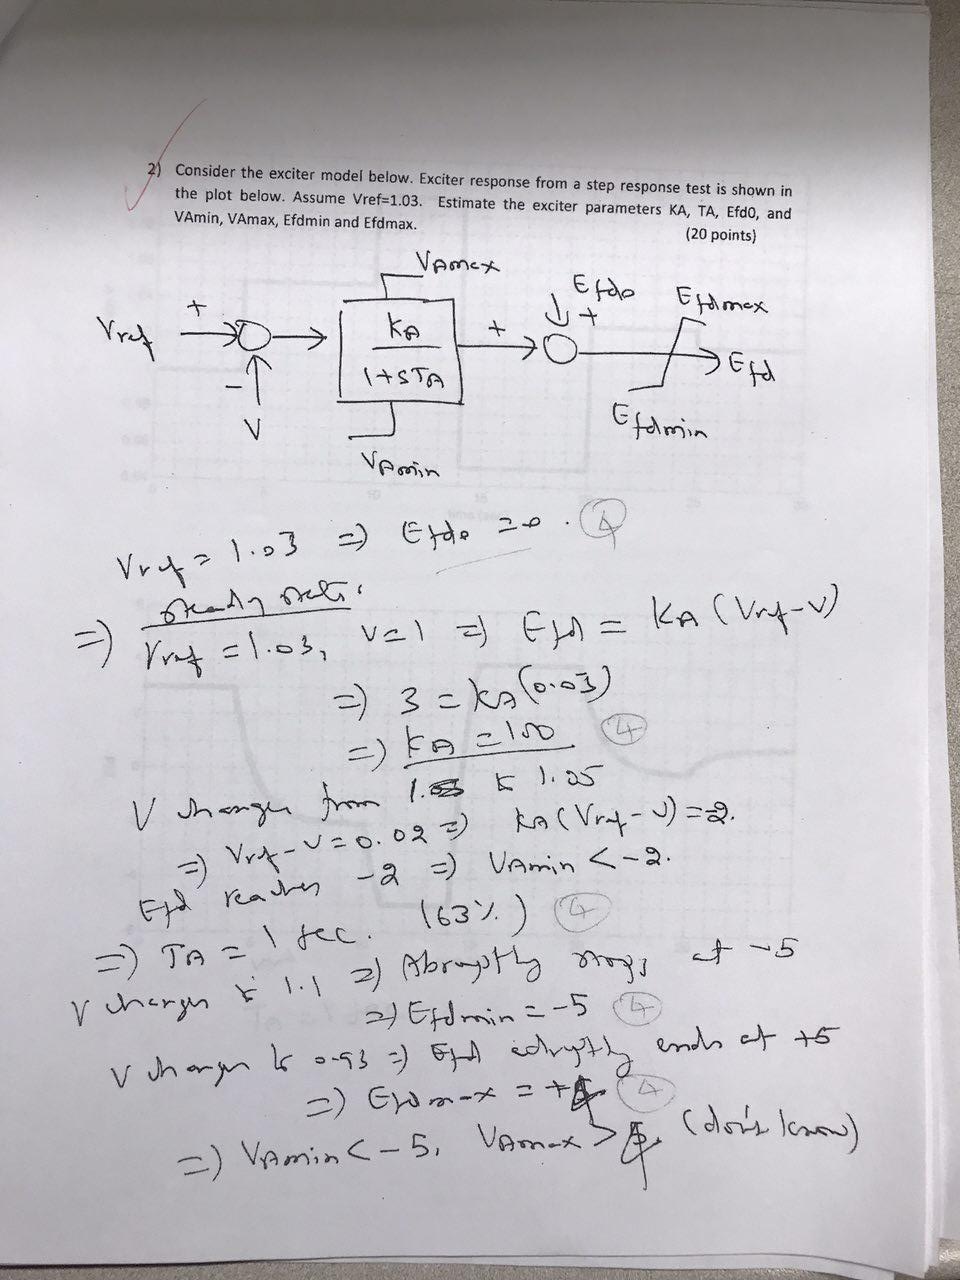 2) Consider the exciter model below. Exciter response from a step response test is shown in
the plot below. Assume Vref=1.03. Estimate the exciter parameters KA, TA, Efd0, and
VAmin, VAmax, Efdmin and Efdmax. (20 points)
VAmax
Efdo
Efdmax
Vref + KA + + Efd
1+STA
-
V
Efdmin
VAmin
Vref = 1.03 => Efdo = 0. 4
=> steady state:
Vref = 1.03, V=1 => Efd = KA (Vref-V)
=> 3 = KA (0.03)
=> KA = 100 4
V changes from to 1.05
=> Vref-V = 0.02 => KA (Vref-V) = -2.
Efd reaches -2 => VAmin < -2.
=> TA = 1 sec. (63%) 4
V changes to 1.1 => Abruptly stops at -5
=> Efdmin = -5 4
V changes to 0.93 => Efd abruptly ends at +5
=> Efdmax = + 4
=> VAmin < -5, VAmax > (don't know)